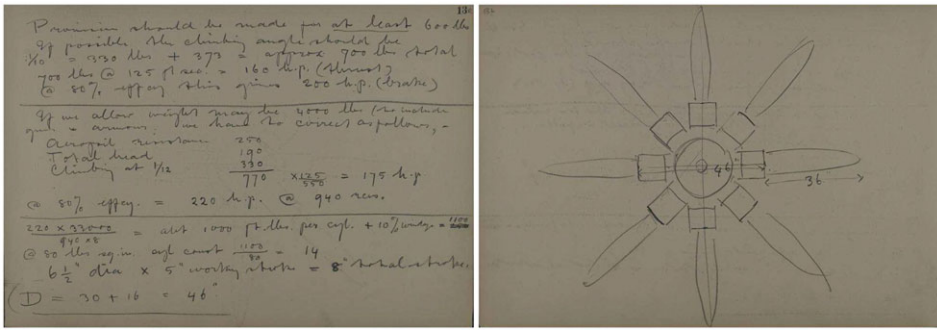 13
Provision should be made for at least 600 lbs
If possible the climbing angle should be
1/10 = 330 lbs + 373 = approx 700 lbs total
700 lbs @ 125 ft sec. = 160 h.p. (thrust)
@ 80% effcy this gives 200 h.p. (brake)
If we allow weight may be 4000 lbs (to include
gun = armour, we have to correct as follows,-
Aerofoil resistance 250
Total head 190
Climbing at 1/12 330
770 × 125/550 = 175 h.p
@ 80% effcy. = 220 h.p. @ 940 revs.
220 × 33000 / 940 × 8 = abt 1000 ft lbs. per cyl. + 10% = 1100
@ 80 lbs sq.in. cyl const 1100/80 = 14
6 1/2" dia × 5" working stroke = 8" total stroke.
D = 30 + 16 = 46"
46
36